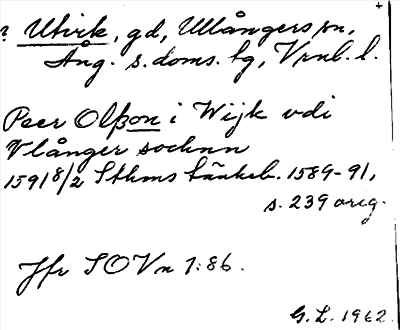 ? Utvik, gd, Ullångers sn,
Ång. s. doms. lg, Vrnl. l.
Peer Olßon i Wijk vdi
Vlånger sochnn
1591 8/2 Sthms tänkeb. 1589-91,
s. 239 orig.
Jfr SOVn 1:86.
G. L. 1962